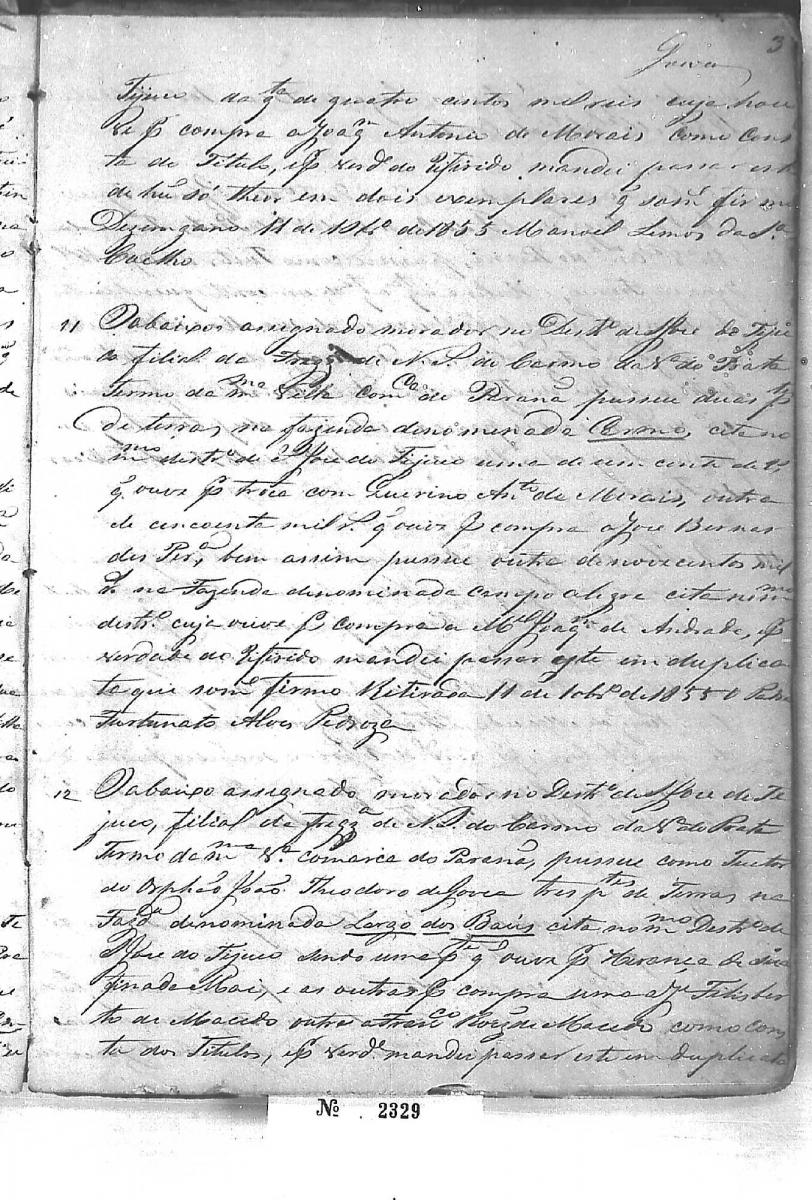 3
Tijuco da q.ta de quatro centos mil reis cuja houve
ve p compra a Joaq.m Antonio de Morais como cons
ta do Titulo, e p verd.e do referido mandei passar este
de hu só theor em dois exemplares q som.e firmo
Dezemgano 11 de 1855 Manoel Lemos da S.a
Coelho
11 O abaixo assignado morador no Destr.o de S Jose do Tiju
co filial da Freg.a de N. S. do Carmo da V.a do Prata
Termo da m.ma Villa com.ca do Paraná possue duas p.tes
de terras na fazenda denominada Cermo, cita no
m.mo distr.o de S Jose do Tijuco uma de um conto de r.s
q ouve p troca com Querino An.to de Morais, outra
de cincoenta mil r.s q ouve p compra a Jose Bernar
des Per.a, bem assim possue outra de novecentos mil
r.s na Fazenda denominada campo alegre cita no m.mo
destr.o cuja ouve p compra a M.el Joaq.m de Andrade, e p
verdade do referido mandei passar este em duplica
ta que som.e firmo Retirada 11 de 1855 O Padre
Fortunato Alves Pedroza
12 O abaixo assignado morador no Destr.o de S Jose do Ti
juco, filial da freg.a de N. S. do Carmo da V.a do Prata
Termo da m.ma V.a comarca do Paraná, possue como Tuctor
do Orphão João Theodoro de Govea tres p.tes de Terras na
Faz.da denominada Largo dos Baús cita no m.mo Destr.o de
S Jose do Tijuco sendo uma p.te q ouve p Herança de sua
finada Mai, e as outras p compra uma a J.e Felisber
to de Macedo outra a Fran.co Roiz de Macedo como cons
ta dos Titulos, e p verd.e mandei passar este em duplicata
Nº 2329